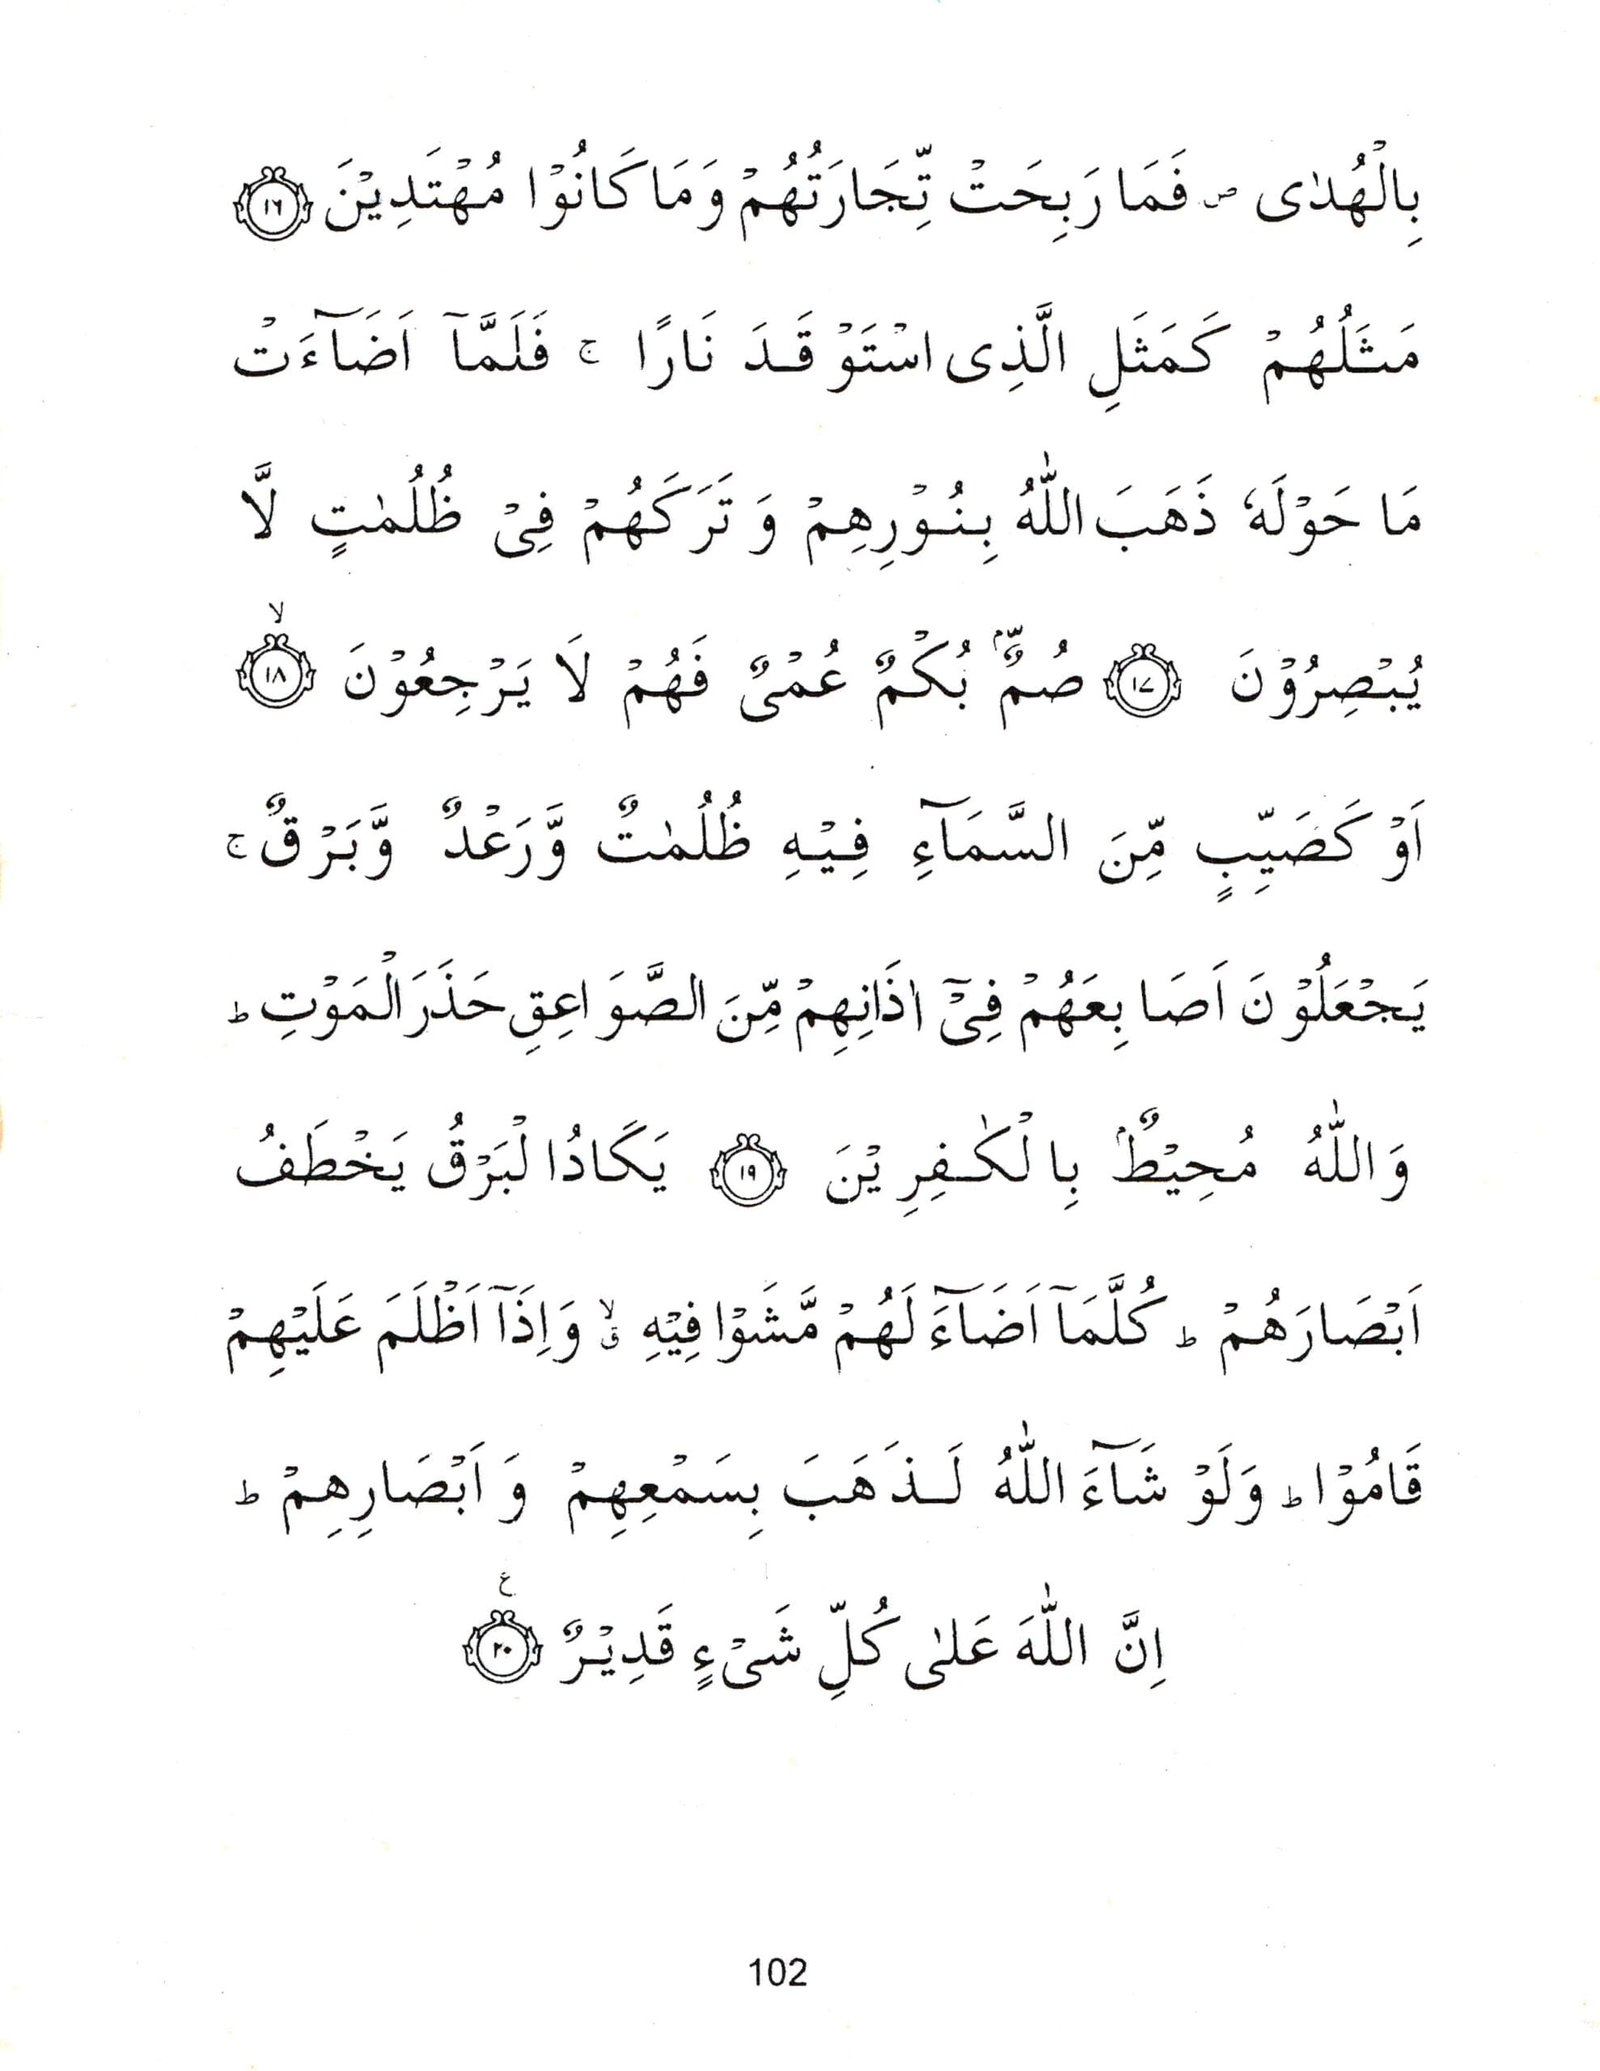 بِالْهُدٰى ۪ فَمَا رَبِحَتْ تِّجَارَتُهُمْ وَمَا كَانُوْا مُهْتَدِيْنَ ﴿١٦﴾
مَثَلُهُمْ كَمَثَلِ الَّذِى اسْتَوْقَدَ نَارًا ۚ فَلَمَّآ اَضَآءَتْ
مَا حَوْلَهٗ ذَهَبَ اللّٰهُ بِنُوْرِهِمْ وَ تَرَكَهُمْ فِىْ ظُلُمٰتٍ لَّا
يُبْصِرُوْنَ ﴿١٧﴾ صُمٌّۢ بُكْمٌ عُمْىٌ فَهُمْ لَا يَرْجِعُوْنَ ۙ﴿١٨﴾
اَوْ كَصَيِّبٍ مِّنَ السَّمَآءِ فِيْهِ ظُلُمٰتٌ وَّرَعْدٌ وَّبَرْقٌ ۚ
يَجْعَلُوْنَ اَصَابِعَهُمْ فِىْٓ اٰذَانِهِمْ مِّنَ الصَّوَاعِقِ حَذَرَ الْمَوْتِ ؕ
وَاللّٰهُ مُحِيْطٌۢ بِالْكٰفِرِيْنَ ﴿١٩﴾ يَكَادُ الْبَرْقُ يَخْطَفُ
اَبْصَارَهُمْ ؕ كُلَّمَآ اَضَآءَ لَهُمْ مَّشَوْا فِيْهِ ۙۗ وَاِذَآ اَظْلَمَ عَلَيْهِمْ
قَامُوْا ؕ وَلَوْ شَآءَ اللّٰهُ لَذَهَبَ بِسَمْعِهِمْ وَ اَبْصَارِهِمْ ؕ
اِنَّ اللّٰهَ عَلٰى كُلِّ شَىْءٍ قَدِيْرٌ ﴿٢٠﴾ ع
102